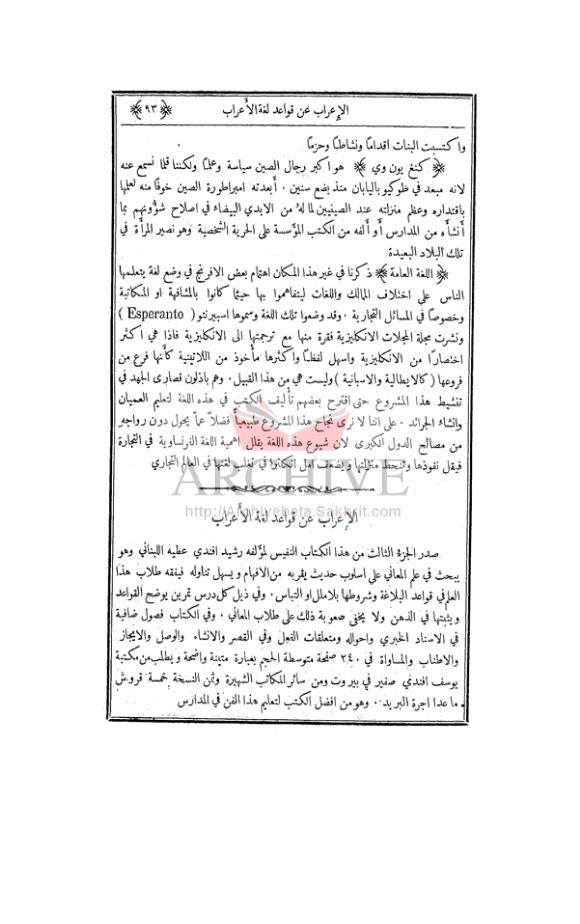 الإعراب عن قواعد لغة الأعراب ﴿ ٩٣ ﴾
واكتسبت البنات اقدامًا ونشاطًا وحزمًا
﴿ كنغ يون وي ﴾ هو اكبر رجال الصين سياسة وعملًا ولكننا قلما نسمع عنه
لانه مبعد في طوكيو باليابان منذ بضع سنين . أبعدته امبراطورة الصين خوفًا منه لعلمها
باقتداره وعظم منزلته عند الصينيين لما لهُ من الايدي البيضاء في اصلاح شؤونهم بما
أنشأه من المدارس أو ألفه من الكتب المؤسسة على الحرية الشخصية وهو نصير المرأة في
تلك البلاد البعيدة
﴿ اللغة العامة ﴾ ذكرنا في غير هذا المكان اهتمام بعض الافرنج في وضع لغة يتعلمها
الناس على اختلاف الممالك واللغات ليتفاهموا بها حيثما كانوا بالمشافهة او المكاتبة
وخصوصًا في المسائل التجارية . وقد وضعوا تلك اللغة وسموها اسبيرنتو ( Esperanto )
ونشرت مجلة المجلات الانكليزية فقرة منها مع ترجمتها الى الانكليزية فاذا هي اكثر
اختصارًا من الانكليزية واسهل لفظًا واكثرها مأخوذ من اللاتينية كأنها فرع من
فروعها ( كالايطالية والاسبانية ) وليست هي من هذا القبيل . وهم باذلون قصارى الجهد في
تنشيط هذا المشروع حتى اقترح بعضهم تأليف الكتب في هذه اللغة لتعليم العميان
وانشاء الجرائد . على اننا لا نرى نجاح هذا المشروع طبيعيًّا فضلًا عمّا يحول دون رواجه
من مصالح الدول الكبرى لان شيوع هذه اللغة يقلل اهمية اللغة الفرنساوية في التجارة
فيقل نفوذها وتنحط منزلتها ويضعف امل انكلترا في تغلب لغتها في العالم التجاري
ARCHIVE
http://Archivebeta.Sakhrit.com
الإعراب عن قواعد لغة الأعراب
صدر الجزء الثالث من هذا الكتاب النفيس لمؤلفه رشيد افندي عطيه اللبناني وهو
يبحث في علم المعاني على اسلوب حديث يقربه من الافهام ويسهل تناوله فيفقه طلاب هذا
العلم في قواعد البلاغة وشروطها بلا ملل او التباس . وفي ذيل كل درس تمرين يوضح القواعد
ويثبتها في الذهن ولا يخفى صعوبة ذلك على طلاب المعاني . وفي الكتاب فصول ضافية
في الاسناد الخبري واحواله ومتعلقات الفعل وفي القصر والانشاء والوصل والايجاز
والاطناب والمساواة في ٢٤٠ صفحة متوسطة الحجم بعبارة متينة واضحة ويطلب من مكتبة
يوسف افندي صفير في بيروت ومن سائر المكاتب الشهيرة وثمن النسخة خمسة قروش
ما عدا اجرة البريد . وهو من افضل الكتب لتعليم هذا الفن في المدارس